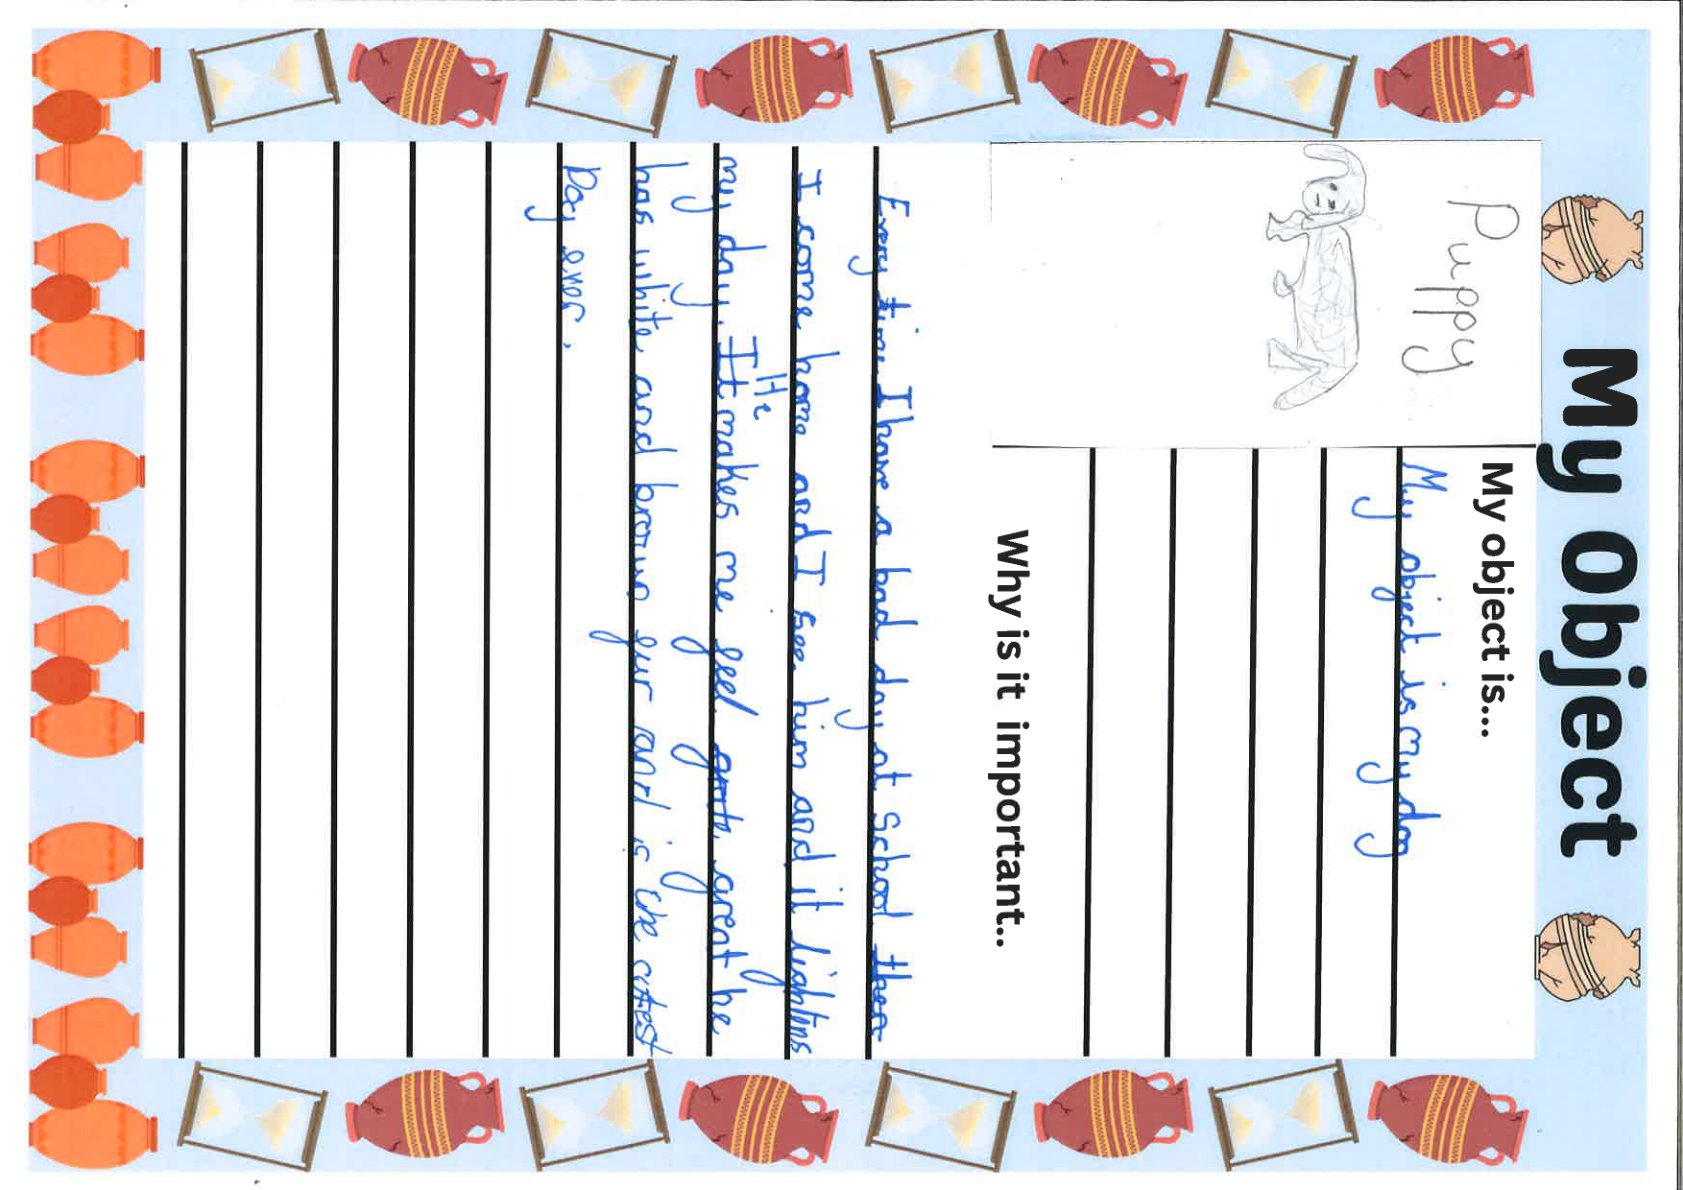 My Object
Puppy
My object is...
My object is my dog
Why is it important..
Every time I have a bad day at School then
I come home and I see him and it lightins
my day. It He makes me feel grate great he
has white and brown fur and is the cutest
Dog ever.